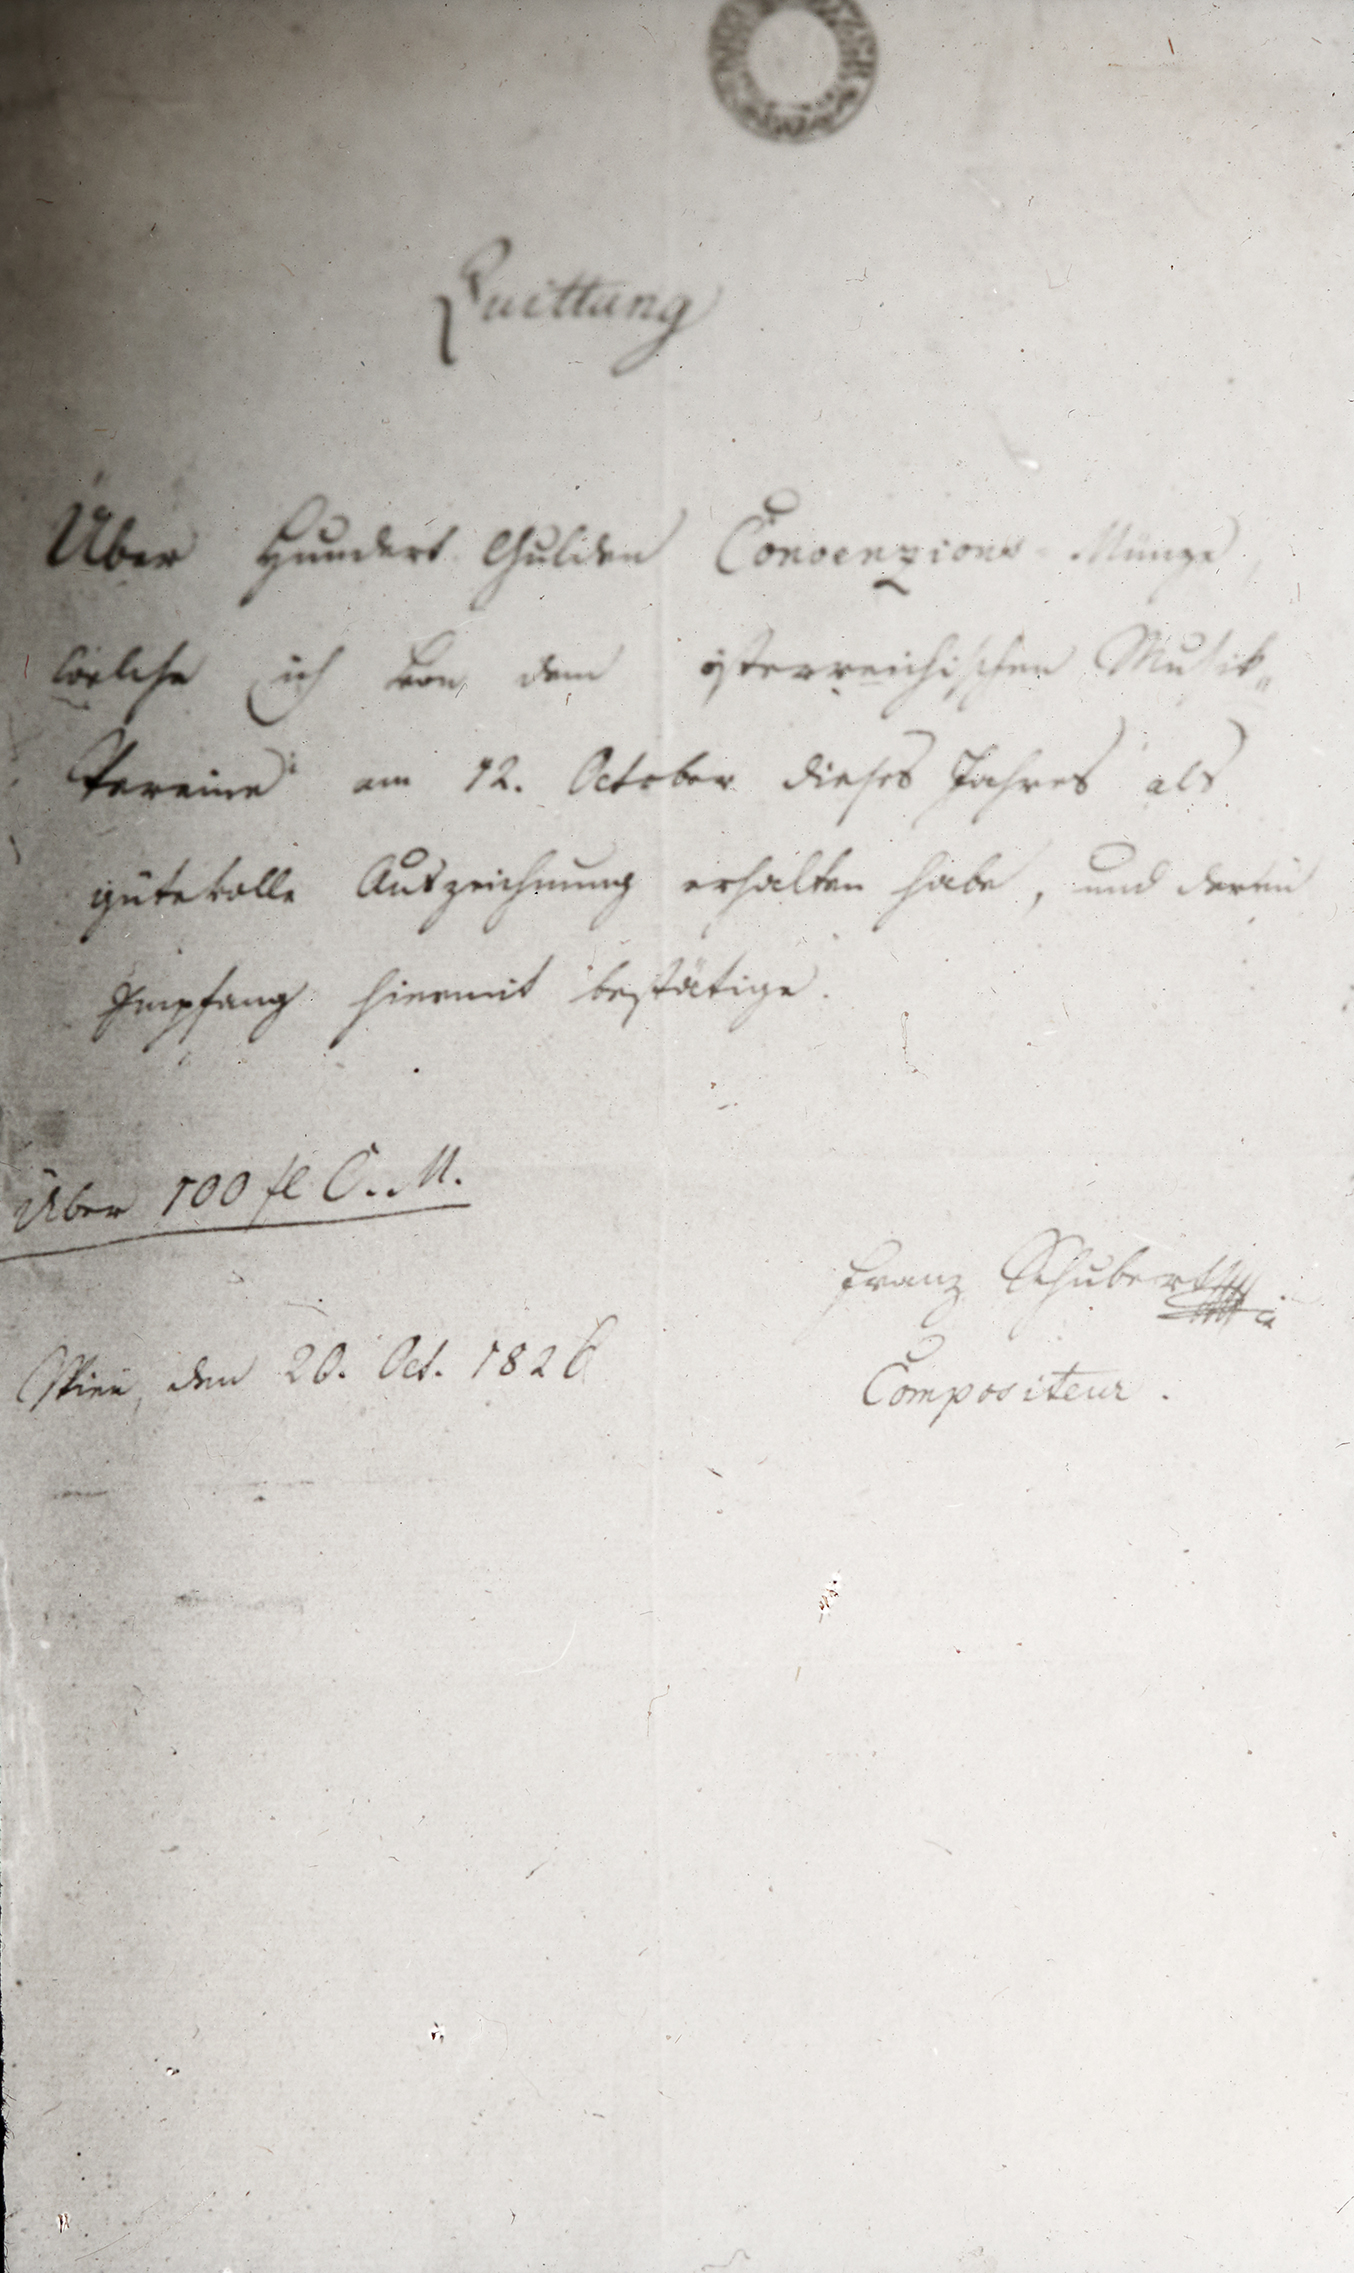 Quittung
Über Hundert Gulden Convenzions-Münze,
welche ich von dem österreichischen Musik„
Vereine am 12. October dieses Jahres als
gütevolle Auszeichnung erhalten habe, und deren
Empfang hiermit bestätige.
Über 100 fl C. M.
Franz Schubert
Wien, den 20. Oct. 1826
Compositeur.